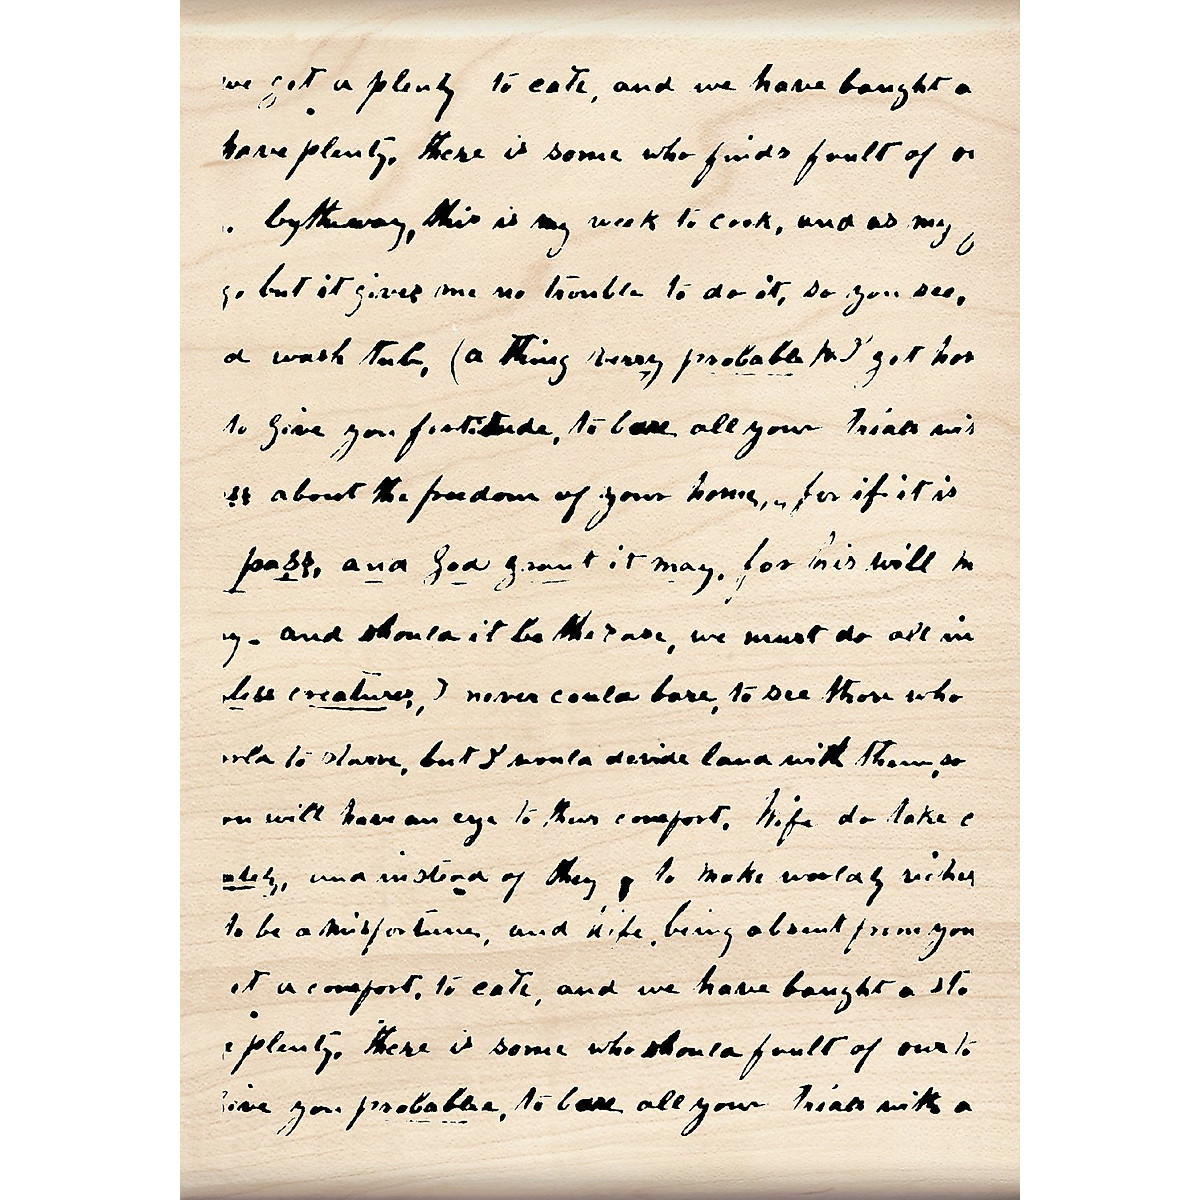 we got a plenty to eate, and we have baught a
have plenty, there is some who finds fault of or
bytheway, this is my week to cook, and as my
go but it gives me no trouble to do it, so you see,
d wash tub, (a thing verry probable) get hor
to give you fortitude, to bare all your trials wit
ss about the freedom of your home, for if it is
pass, and God grant it may, for his will m
y- and should it be the case, we must do all in
less creatures, I never could bare, to see those who
orld to starve, but I would devide land with them, so
on will have an eye to thur comfort. Wife do take c
ately, and instead of they, to make worldly riches
to be a misfortune, and wife, being absent from you
et a comfort, to eate, and we have baught a sto
e plenty, there is some who should fault of our to
give you probable, to bare all your trials with a